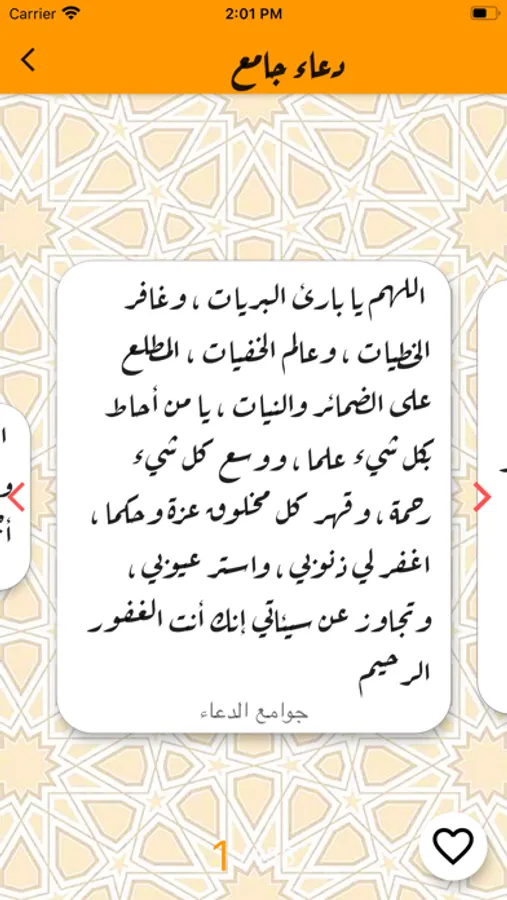 Carrier 2:01 PM
دعاء جامع
اللهم يا بارئ البريات ، وغافر
الخطيات ، وعالم الخفيات ، المطلع
على الضمائر والنيات ، يا من أحاط
بكل شيء علما ، ووسع كل شيء
رحمة ، وقهر كل مخلوق عزة وحكما ،
اغفر لي ذنوبي ، واستر عيوبي ،
وتجاوز عن سيئاتي إنك أنت الغفور
الرحيم
جوامع الدعاء
1